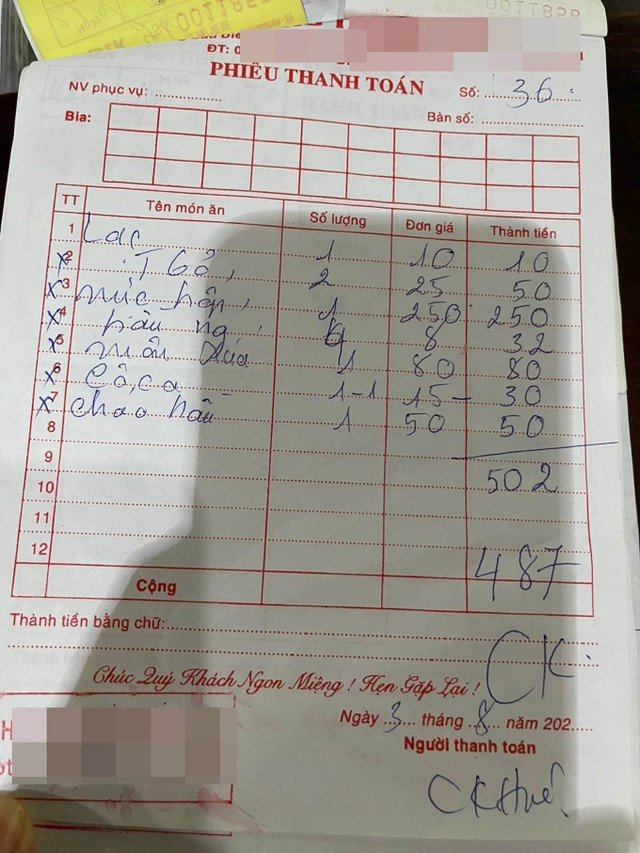 0011858
ĐT: 0
PHIẾU THANH TOÁN
NV phục vụ: ................
Số: 36
Bia:
Bàn số: ................
TT Tên món ăn Số lượng Đơn giá Thành tiền
1 Lạc 1 10 10
x2 T Gà, 2 25 50
x3 mực hấp, 1 250 250
x4 hàu ng, 4 8 32
x5 1 80 80
x6 Cô, ca 1-1 15- 30
x7 chao hàu 1 50 50
8
9
10 502
11
12
487
Cộng
Thành tiền bằng chữ:
CK
Chúc Quý Khách Ngon Miệng ! Hẹn Gặp Lại !
Ngày 3 tháng 8 năm 202
Người thanh toán
CK Huế